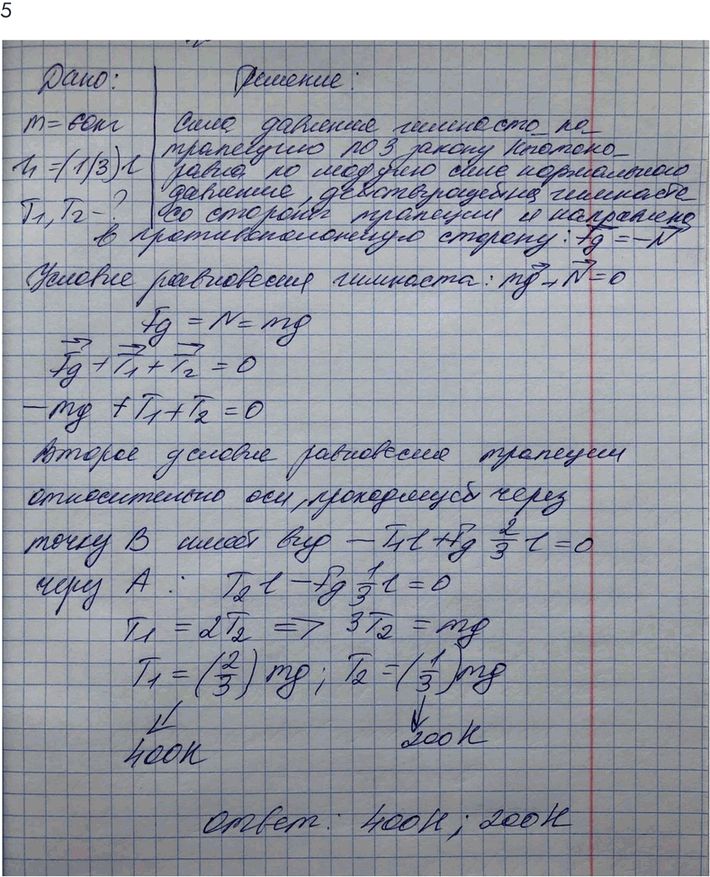 5
Дано: Решение:
m = 60кг Сила давления гимноста на
трапецию по 3 закону Ньютона
l₁ = (1/3) l равна по модулю силе нормального
давления, действующей на гимноста
T₁, T₂ - ? со стороны трапеции и направлена
в противоположную сторону: Fg = -N
Условие равновесия гимноста: mg + N = 0
Fg = N = mg
Fg + T₁ + T₂ = 0
- mg + T₁ + T₂ = 0
Второе условие равновесия трапеции
относительно оси, проходящей через
точку B имеет вид - T₁l + Fg 2/3 l = 0
через A : T₂ l - Fg 1/3 l = 0
T₁ = 2T₂ => 3T₂ = mg
T₁ = (2/3) mg ; T₂ = (1/3) mg
400Н 200Н
Ответ: 400Н ; 200Н